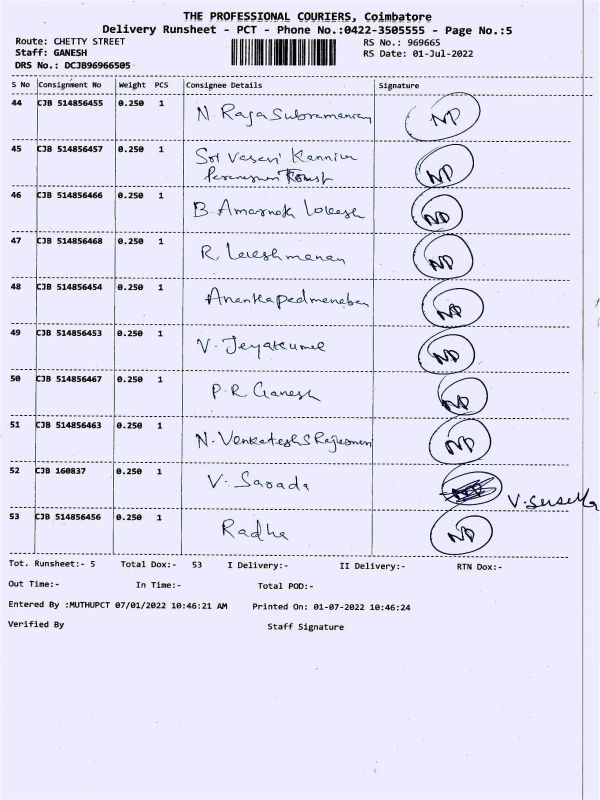 THE PROFESSIONAL COURIERS, Coimbatore
Delivery Runsheet - PCT - Phone No.:0422-3505555 - Page No.:5
Route: CHETTY STREET RS No.: 969665
Staff: GANESH RS Date: 01-Jul-2022
DRS No.: DCJB96966505
S No Consignment No Weight PCS Consignee Details Signature
44 CJB 514856455 0.250 1 N. Raja Subramanian ND
45 CJB 514856457 0.250 1 Sri Vasavi ND
46 CJB 514856466 0.250 1 B. Amarnath Lokesh ND
47 CJB 514856468 0.250 1 R. ND
48 CJB 514856454 0.250 1 ND
49 CJB 514856453 0.250 1 V. Jeyakumar ND
50 CJB 514856467 0.250 1 P. R Ganesh ND
51 CJB 514856463 0.250 1 N. Venkatesh ND
52 CJB 160837 0.250 1 V. Sarada
53 CJB 514856456 0.250 1 Radha ND
Tot. Runsheet:- 5 Total Dox:- 53 I Delivery:- II Delivery:- RTN Dox:-
Out Time:- In Time:- Total POD:-
Entered By :MUTHUPCT 07/01/2022 10:46:21 AM Printed On: 01-07-2022 10:46:24
Verified By Staff Signature